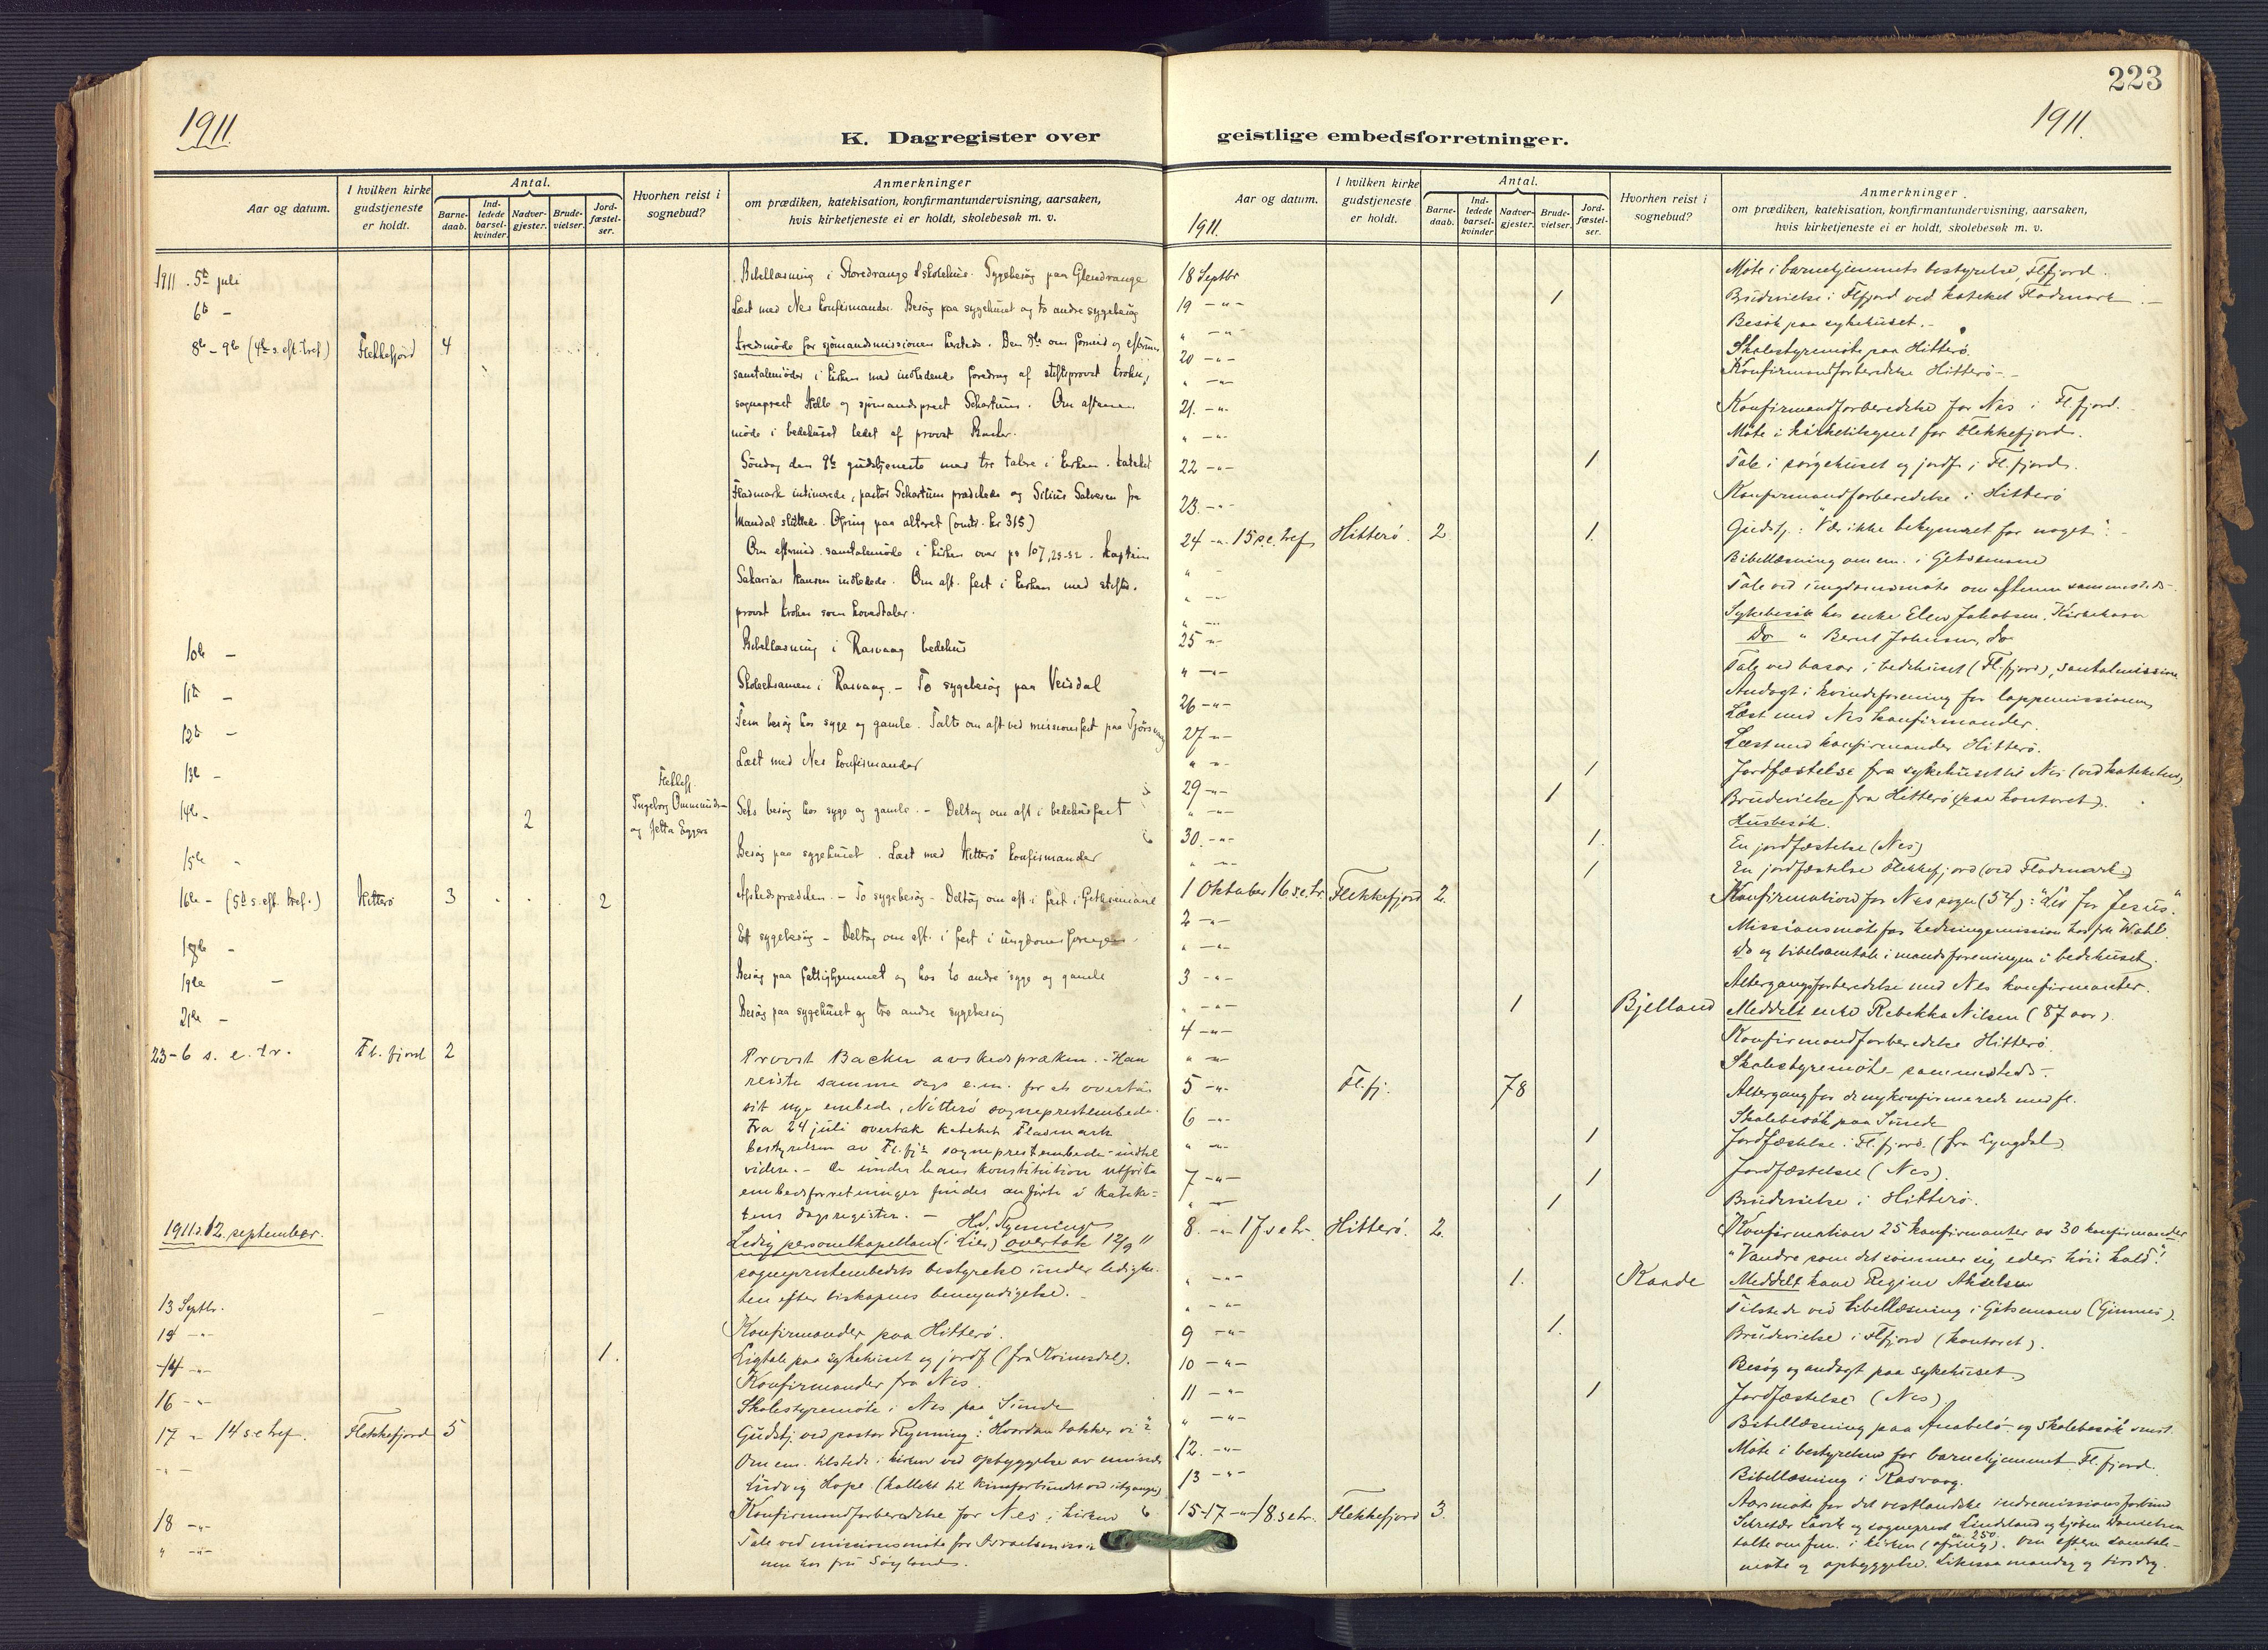 223
1911.
1911.
K. Dagregister over
geistlige embedsforretninger.
Aar og datum.
I hvilken kirke gudstjeneste er holdt.
Antal.
Barnedaab.
Indledede barselkvinder.
Nadvergjester.
Brudevielser.
Jordfæstelser.
Hvorhen reist i sognebud?
Anmerkninger
om prædiken, katekisation, konfirmantundervisning, aarsaken,
hvis kirketjeneste ei er holdt, skolebesøk m. v.
1911. 5te juli Bibellæsning i Storedrange skolehus. Sygebesøg paa Glendrange
6te - Læst med Nes konfirmander. Besøg paa sygehuset og to andre sygebesøg
8de - 9de (4de s. eft. tref.) Flekkefjord 4 Kredsmøde for sjømandsmissionen herteds. Den 8de om formid og eftermid
samtalemøder i kirken med indledende foredrag af stiftsprovst Krohn,
sogneprest Helle og sjømandsprest Schartum. Om aftenen
møde i bedehuset ledet af provst Bache.
Søndag den 9de gudstjeneste med tre talere i kirken. Kateket
Fladmark intimerede, pastor Schartum prædikede og Silius Salvesen fra
Mandal sluttede. Ofring paa alteret (omtr. kr 315)
Om eftermid. samtalemøde i kirken over ps 107,23-32. Kaptein
Sakarias Hansen indledede. Om aft. fest i kirken med stifts-
provst Krohn som hovedtaler.
10de - Bibellæsning i Rasvaag bedehus
11te - Skoleeksamen i Rasvaag. - To sygebesøg paa Veisdal
12te - Fem besøg hos syge og gamle. Talte om aft ved missionsfest paa Tjørsvaag
13de - Læst med Nes konfirmander
14de - 2 Flekkefj. Ingeborg Ommunds- og Jetta Eggers Seks besøg hos syge og gamle. - Deltog om aft i bedehusfest
15de " Besøg paa sygehuset. Læst med Hitterø konfirmander
16de - (5te s. eft. tref.) Hitterø 3 2 Afskedsprædiken. - To sygebesøg - Deltog om aft i fest i Gethsemane
17de - Et sygebesøg - Deltog om aft. i fest i ungdomsforeningen.
19de - Besøg paa fattighjemmet og hos to andre syge og gamle
21de - Besøg paa sygehuset og tre andre sygebesøg
23 - 6 s. e. tr. Fl. fjord 2 Provst Bache avskedspræken. - Han
reiste samme dags e.m. for at overta
sit nye embede, Nøtterø sogneprestembede.
Fra 24 juli overtok kateket Fladmark
bestyrelsen av Fl.fj.s sogneprestembede indtil
videre. - De under hans konstitution utførte
embedsforretninger findes anførte i kateke-
tens dagregister. - H. Rynning
1911. 12. september. Ledig personelkapellan (i Lier) overtok 12/9 11
sogneprestembedets bestyrelse under ledighe-
ten efter biskopens bemyndigelse. -
13 Septbr. - Konfirmander paa Hitterø.
14 -"- 1. Ligtale paa sykehuset og jordf (fra Kvinesdal).
14 -"- Konfirmander fra Nes.
16 -"- Skolestyremøte i Nes paa Sunde
17 -"- 14 s e tref. Flekkefjord 5 Gudstj. ved pastor Rynning: "Hvordan takker vi"?
Om em. tilstede i kirken ved opbyggelse av
Ludvig Hope. (kollekt til Kinaforbundet ved utgangen)
18 -"- Konfirmandforberedelse for Nes i kirken
" -"- Tale ved missionsmøte for Israelsmissio-
nen hos fru Søyland.
Aar og datum.
1911.
I hvilken kirke gudstjeneste er holdt.
Antal.
Barnedaab.
Indledede barselkvinder
Nadvergjester.
Brudevielser.
Jordfæstelser.
Hvorhen reist i sognebud?
Anmerkninger.
om prædiken, katekisation, konfirmantundervisning, aarsaken,
hvis kirketjeneste ei er holdt, skolebesøk m. v.
18 Septbr Møte i barnehjemmets bestyrelse Flfjord.
19 -"- 1 Brudevielse i Flfjord ved kateket Fladmark. -
" -"- Besøk paa sykehuset. -
20 -"- Skolestyremøte paa Hitterø.
" -"- Konfirmandforberedelse Hitterø -
21. -"- Konfirmandforberedelse for Nes i Fl. fjord.
" -"- Møte i kirketilsynet for Flekkefjord.
22 -"- 1 Tale i sørgehuset og jordf. i Fl. fjord.
23. -"- Konfirmandforberedelse i Hitterø
24 -"- 15 s.e. tref Hitterø. 2 1. Gudstj.: "Vær ikke bekymret for noget". -
" - Bibellæsning om em. i Getsemane
" -"- Tale ved ungdomsmøte om aftenen sammesteds. -
" -"- Sykebesøk hos enke Elen Jakobsen, Kirkehavn
25 -"- Do " Bernt Johnsen, do
" -"- Tale ved basar i bedehuset (Fl. fjord), santalmission
26 -"- Andagt i kvindeforening for lappemissionen
27 -"- Læst med Nes konfirmander.
" -"- Læst med konfirmander Hitterø.
29 -"- 1 Jordfæstelse fra sykehuset til Nes (ved kateketen)
" -"- 1 Brudevielse fra Hitterø (paa kontoret).
Husbesøk.
30. -"- 1. En jordfæstelse (Nes)
" -"- 1 En jordfæstelse Flekkefjord (ved Fladmark)
1 Oktober 16 s.e. tr. Flekkefjord 2. Konfirmation for Nes sogn (54): "Lev for Jesus."
2 -"- Missionsmøte for hedningemission hos frk Wahl.
" -"- Do og bibelsamtale i mandsforeningen i bedehuset.
3 -"- Altergangsforberedelse med Nes konfirmanter.
" -"- 1 Bjelland Meddelt enke Rebekka Nilsen (87 aar).
4 -"- Konfirmandforberedelse Hitterø.
" -"- Skolestyremøte sammesteds. -
5 -"- Fl. fj. 78 Altergang for de nykonfirmerede med fl.
6 -"- Skolebesøk paa Sunde
" -"- 1 Jordfæstelse i Fl. fjord. (fra Lyngdal)
7 -"- 1 Jordfæstelse (Nes).
" -"- 1 Brudevielse i Hitterø.
8. -"- 17 s e tr. Hitterø. 2. Konfirmation 25 konfirmanter av 30 konfirmander
"Vandre som det sømmer sig eders høie kald"!
" -"- 1. Raade Meddelt kone Regine Akselsen
" -"- Tilstede ved bibellæsning i Getsemane (Gimnes).
9 -"- 1. Brudevielse i Flfjord (kontoret).
10 -"- Besøg og andagt paa sykehuset
11 -"- 1 Jordfæstelse (Nes)
" -"- Bibellæsning paa Anabelø og skolebesøk smst.
12. -"- Møte i bestyrelsen for barnehjemmet Fl. fjord
13 -"- Bibellæsning i Rasvaag.
15-17 -"- 18. s e tr. Flekkefjord 3. Aarsmøte for det vestlandske indremissionsforbund
Sekretær Lavik og sogneprest Lindeland og kjøbm Danielsen
talte om fm. i kirken (ofring ca. 250). Om eftm samtale-
møte og opbyggelse. Likesaa mandag og tirsdag.